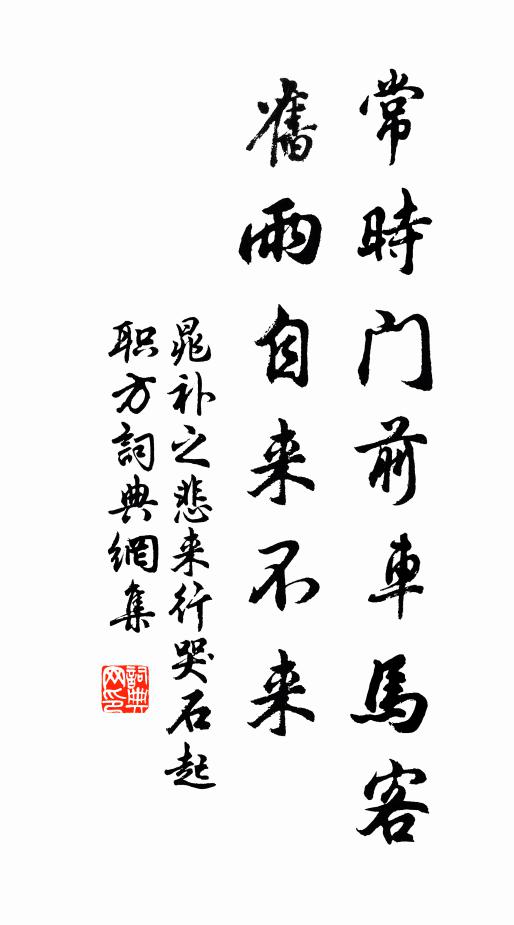 常時門前車馬客
舊雨自来不来
晁补之悲来行哭石起
职方詞典網集
詞典網印